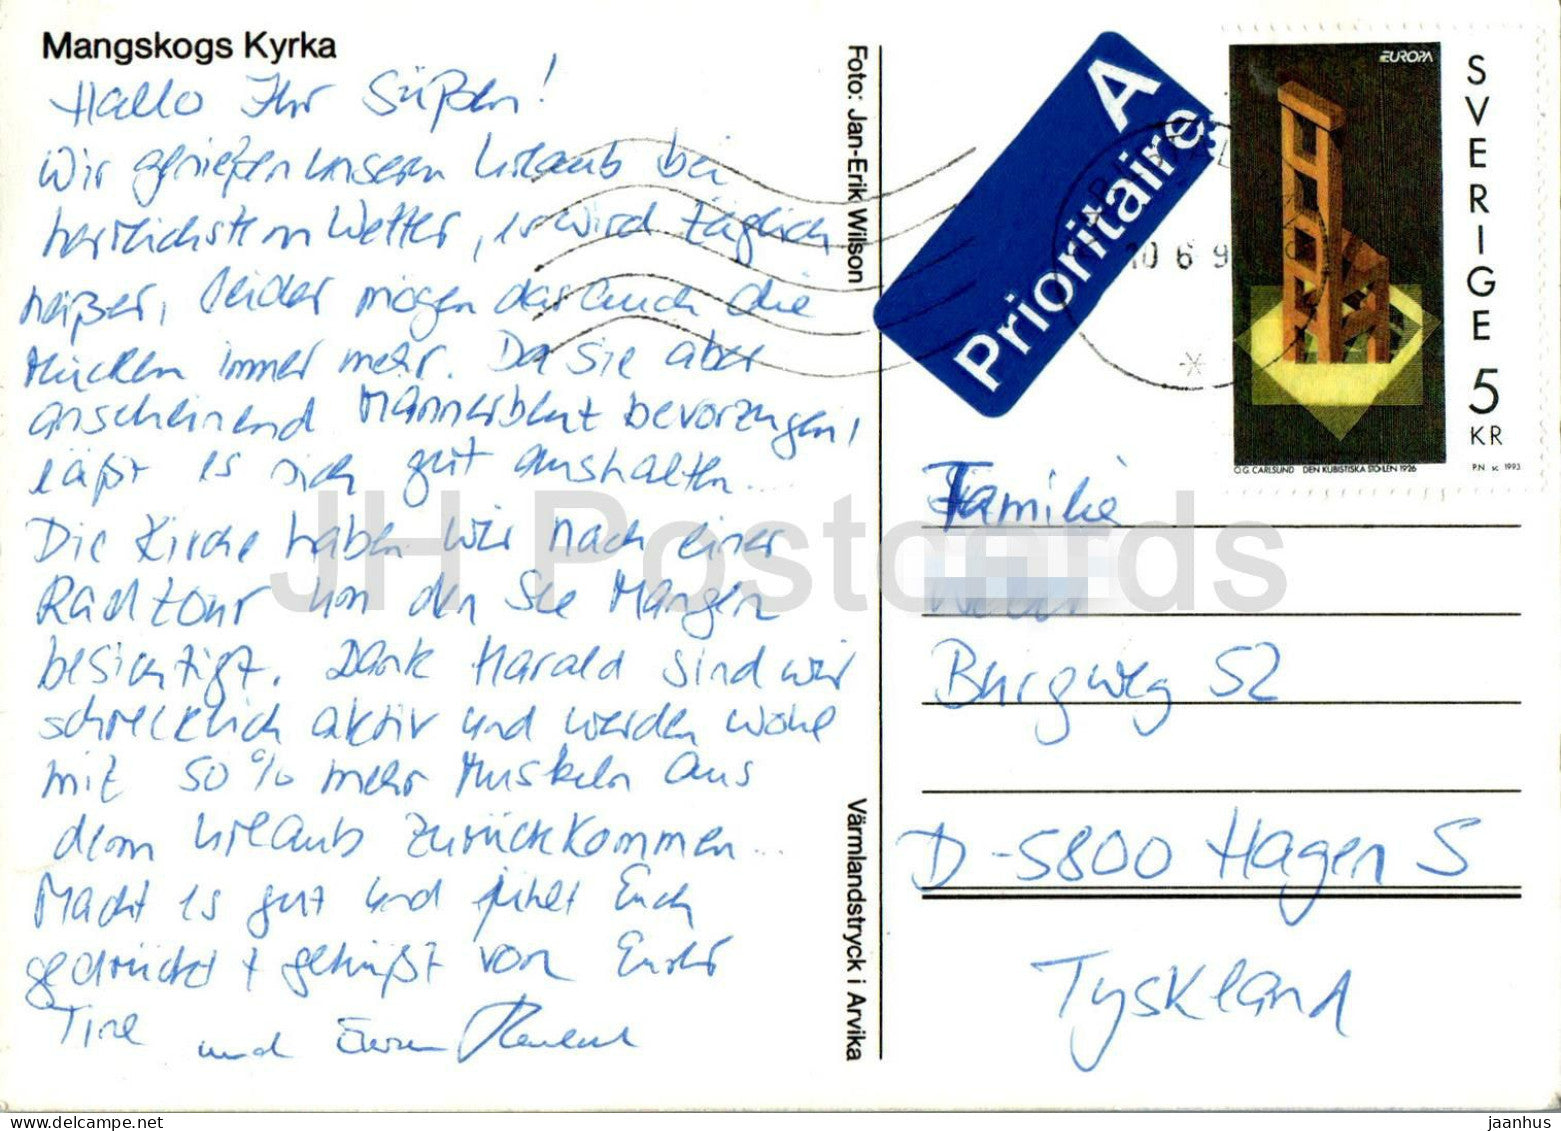 Mangskogs Kyrka
Hallo Ihr Süßen!
Wir genießen unseren Urlaub bei
herrlichstem Wetter, es wird täglich
heißer, leider mögen das auch die
Mücken immer mehr. Da sie aber
anscheinend Männerblut bevorzugen,
läßt es sich gut aushalten...
Die Kirche haben wir nach einer
Radtour um den See Mangen
besichtigt. Dank Harald sind wir
schrecklich aktiv und werden wohl
mit 50% mehr Muskeln aus
dem Urlaub zurückkommen...
Macht es gut und fühlt Euch
gedrückt + geküßt von Eurer
Tine und Eurem Harald
Foto: Jan-Erik Wilson
Värmlandstryck i Arvika
A
Prioritaire
10 6 9
EUROPA
SVERIGE
5
KR
O.G. CARLSUND DEN KUBISTISKA STOLEN 1926
P.N. sc. 1993
Familie
Burgweg 52
D-5800 Hagen 5
Tyskland
JH Postcards
www.delcampe.net
jaanhus